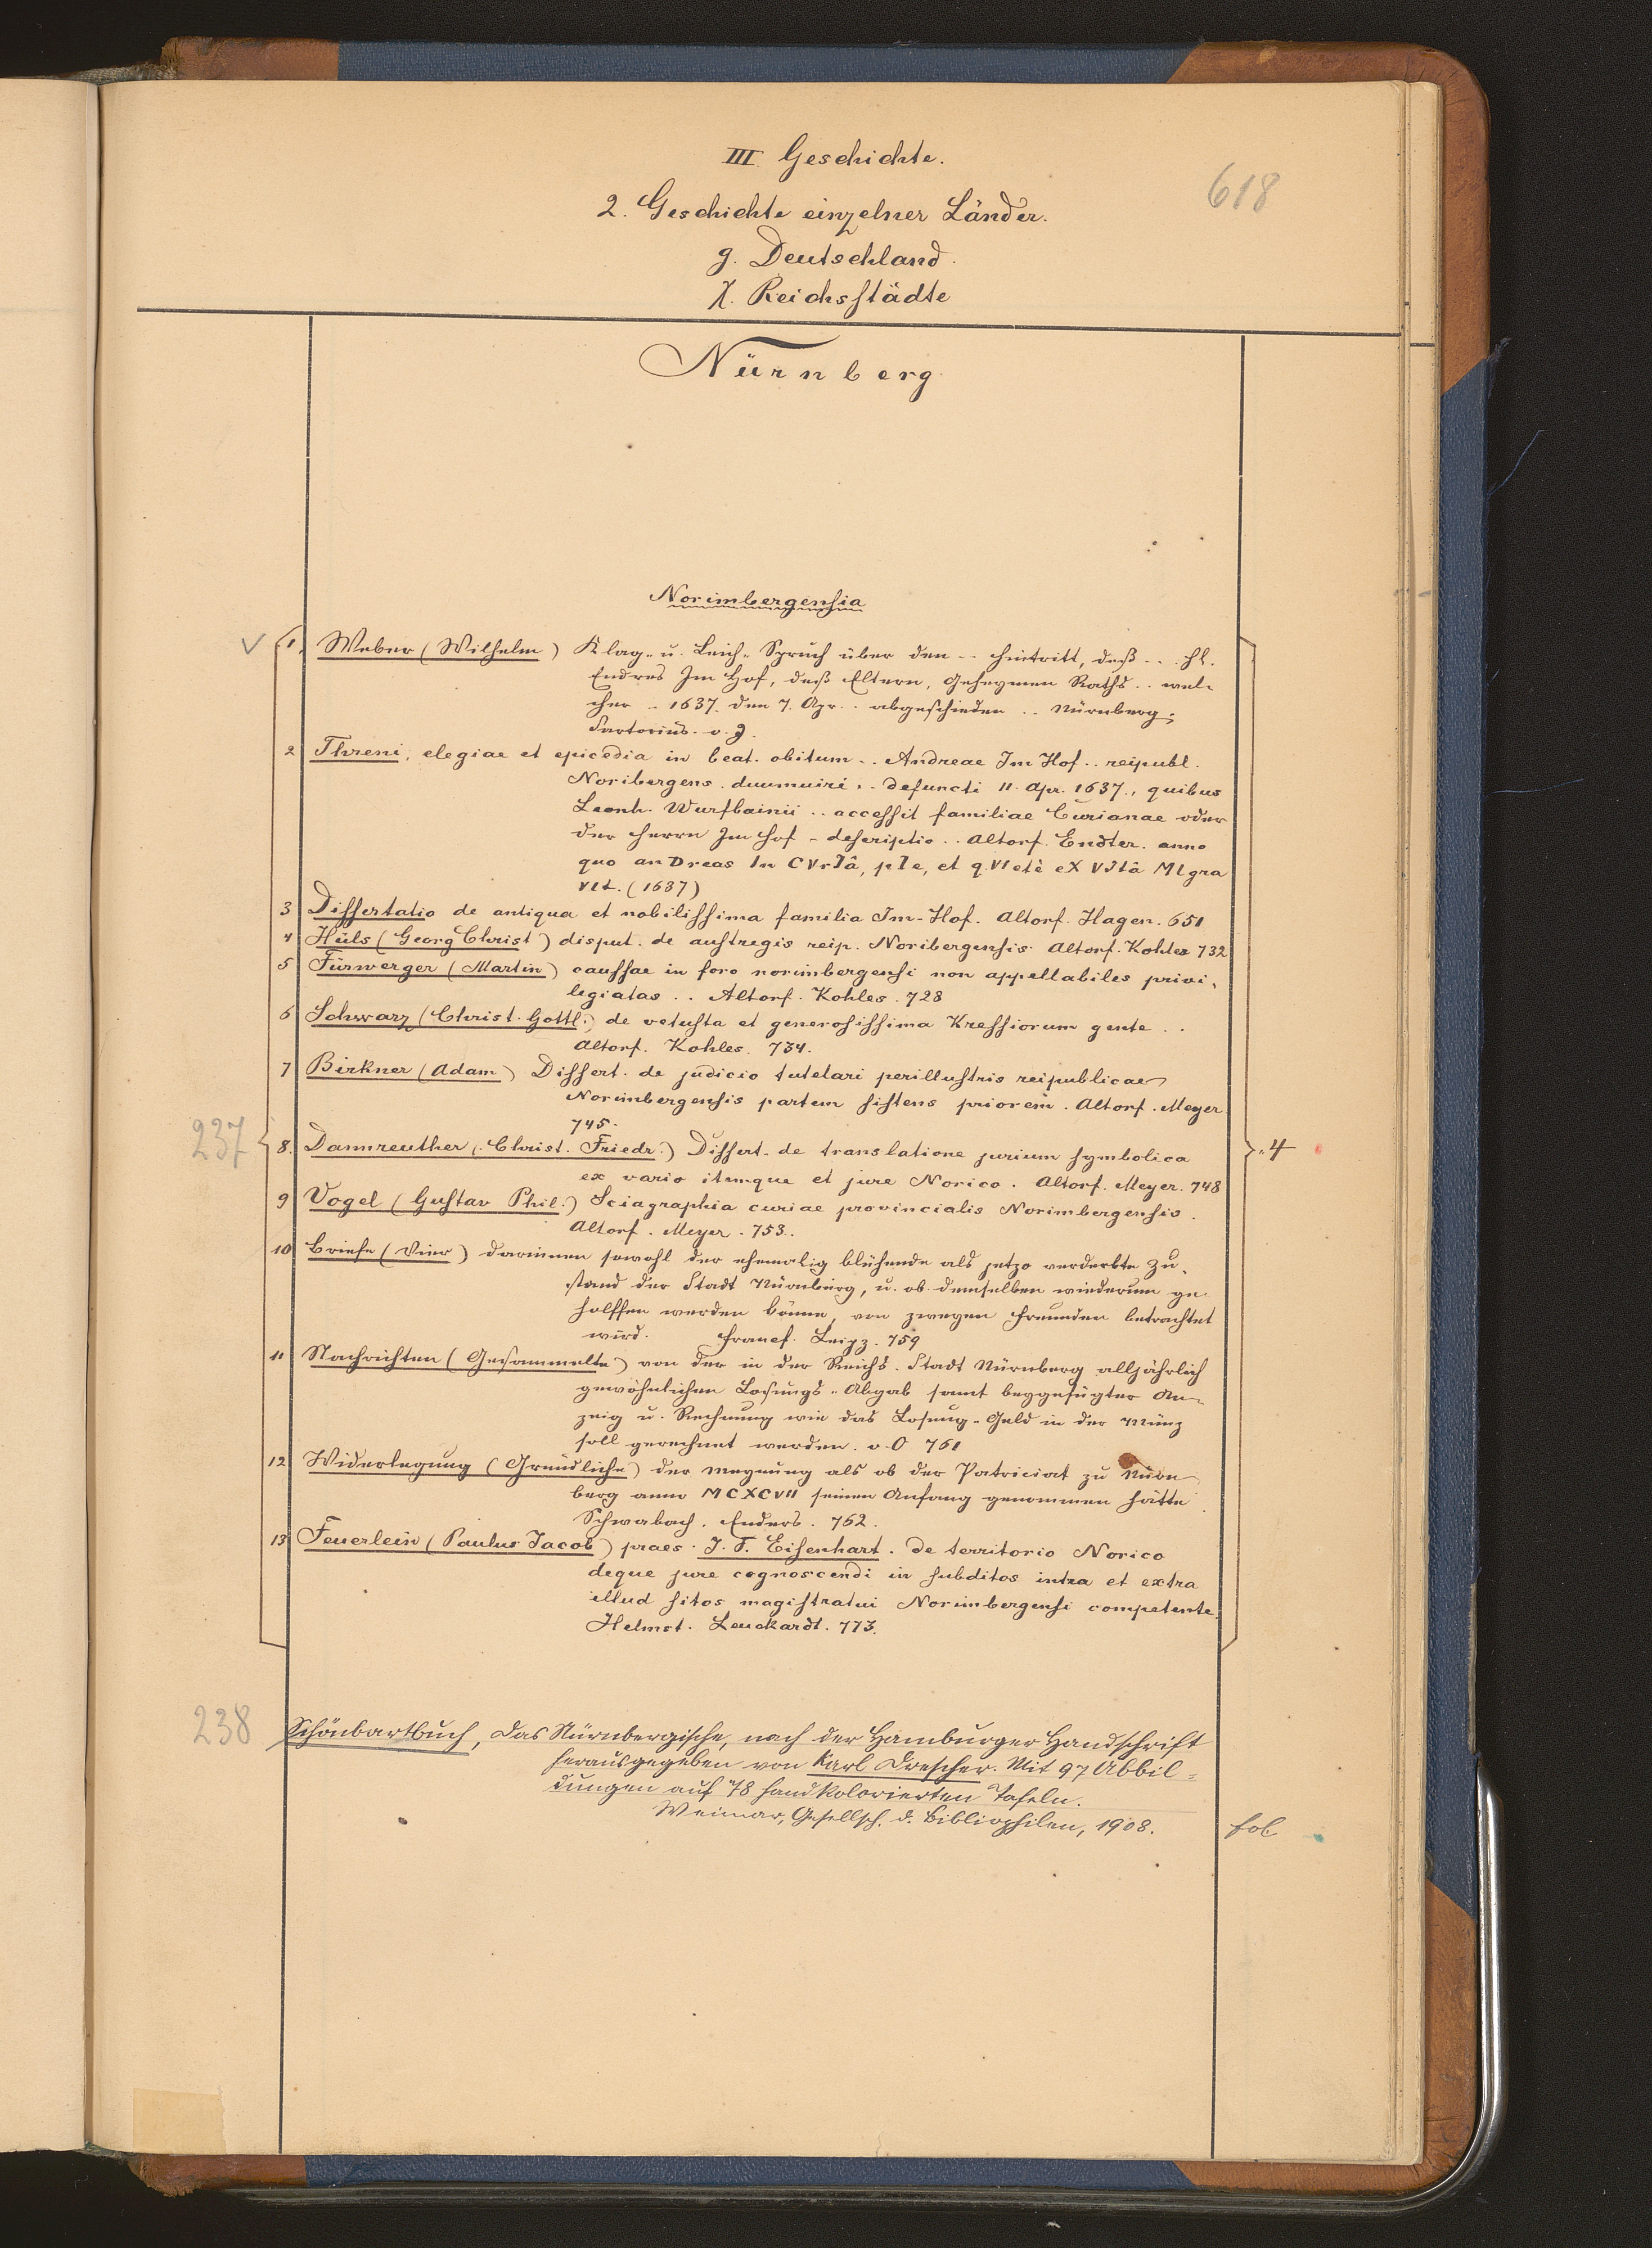 III Geschichte.
618
2. Geschichte einzelner Länder.
g. Deutschland.
χ. Reichsstädte
Nürnberg
Norimbergensia
1. Weber (Wilhelm) Klag- u. Leich-Spruch über den .. Hintritt, deß ... Hl.
Endres Im Hof, deß Eltern, Geheymen Raths .. wel-
cher .. 1637. den 7. Apr. .. abgeschieden .. Nürnberg.
Sartorius. o. J.
2 Threni, elegiae et epicedia in beat. obitum .. Andreae Im Hof .. reipubl.
Noribergens. duumuiri .. defuncti 11. Apr. 1637., quibus
Leonh. Wurfbainii .. accessit familiae Curianae oder
der Herrn Im Hof - descriptio .. Altorf. Endter. anno
quo anDreas In CVrIâ, pIe, et qVIetè eX VItâ MIgra
VIt. (1637)
3 Dissertatio de antiqua et nobilissima familia Im-Hof. Altorf. Hagen. 651
4 Hüls (Georg Christ) disput. de austregis reip. Noribergensis. Altorf. Kohles 732
5 Fürwerger (Martin) caussae in foro norimbergensi non appellabiles privi-
legiatas .. Altorf. Kohles. 728
6 Schwarz (Christ. Gottl.) de vetusta et generosissima Kressiorum gente ..
Altorf. Kohles. 734.
7 Birkner (Adam) Dissert. de judicio tutelari perillustris reipublicae
Norimbergensis partem sistens priorem. Altorf. Meyer
745.
237
8. Dannreuther (Christ. Friedr.) Dissert. de translatione jurium symbolica
4
ex vario itemque et jure Norico. Altorf. Meyer. 748
9 Vogel (Gustav Phil.) Sciagraphia curiae provincialis Norimbergensis.
Altorf. Meyer. 753.
10 Briefe (Vier) darinnen sowohl der ehemalig blühende als jetzo verderbte Zu-
stand der Stadt Nürnberg, u. ob demselben wiederum ge-
holffen werden könne, von zweyen Freunden betrachtet
wird. Francf. Leipz. 759
11 Nachrichten (Gesammelte) von der in der Reichs-Stadt Nürnberg alljährlich
gewöhnlichen Losungs-Abgab samt beygefügter An-
zeig u. Rechnung wie das Losung-Geld in der Münz
soll gerechnet werden. o. O 761
12 Widerlegung (Gründliche) der Meynung als ob der Patriciat zu Nürn-
berg anno MCXCVII seinen Anfang genommen hätte.
Schwabach. Enders. 762.
13 Feuerlein (Paulus Jacob) praes. J. F. Eisenhart. de territorio Norico
deque jure cognoscendi in subditos intra et extra
illud sitos magistratui Norimbergensi competente.
Helmst. Leuckardt. 773.
238
Schönbartbuch, Das Nürnbergische, nach der Hamburger Handschrift
herausgegeben von Karl Drescher. Mit 97 Abbil-
dungen auf 78 handkolorierten Tafeln.
Weimar, Gesellsch. d. Bibliophilen, 1908.
fol